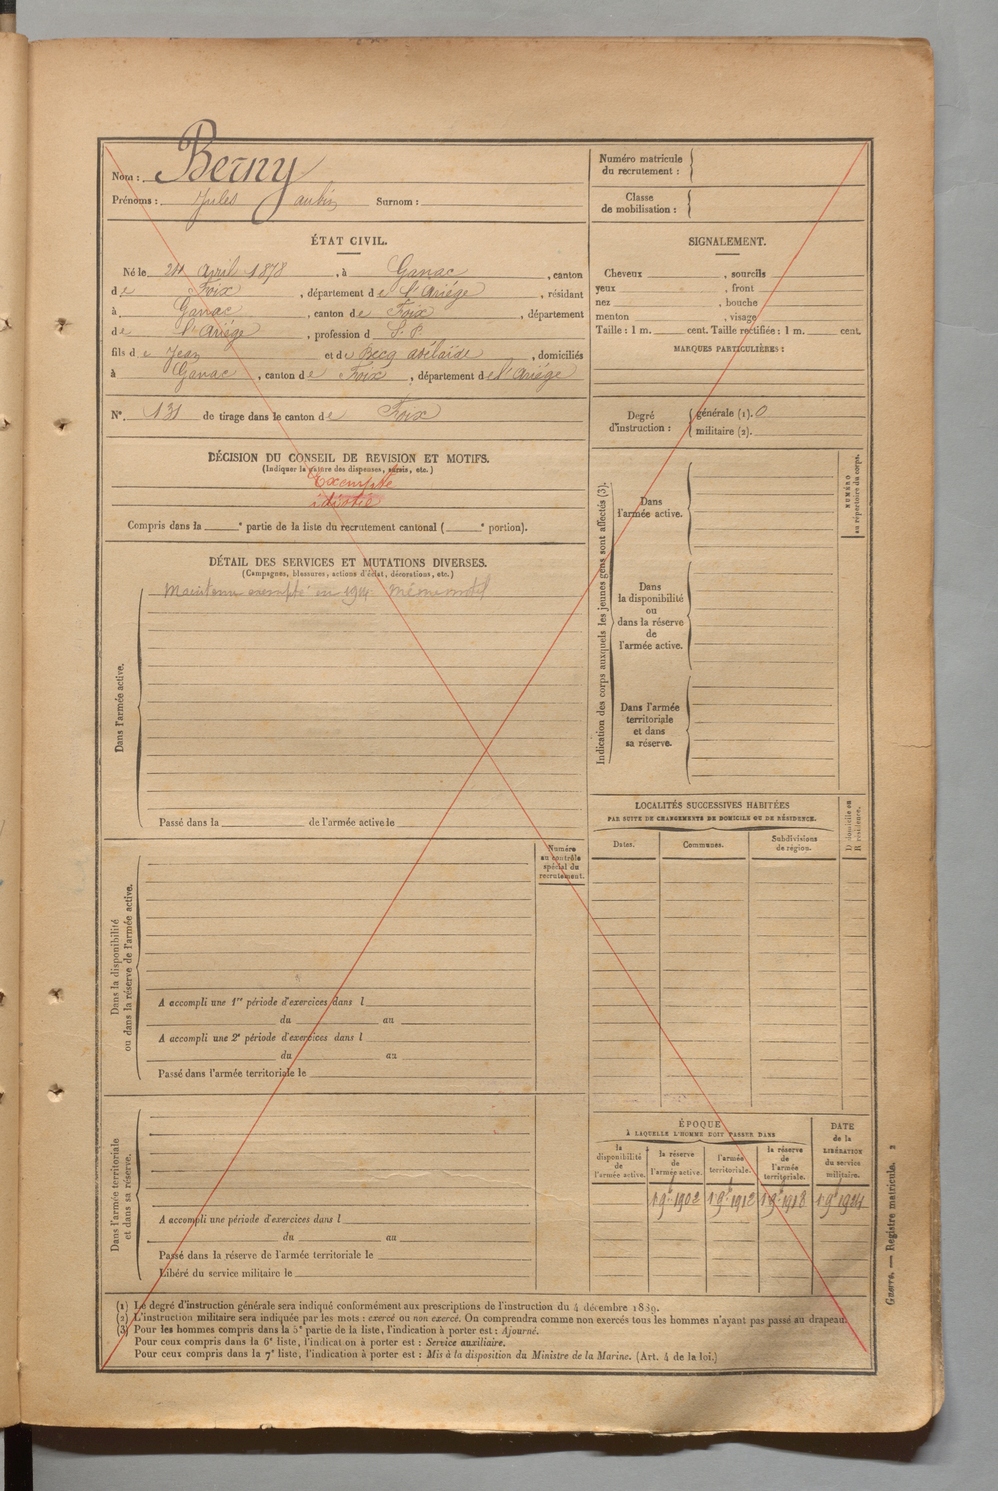 Nom : Berny
Prénoms : Jules aubin Surnom :
Numéro matricule du recrutement :
Classe de mobilisation :
ÉTAT CIVIL.
Né le 24 Avril 1878, à Ganac, canton
de Foix, département de l'Ariége, résidant
à Ganac, canton de Foix, département
de l'Ariége, profession d S. P
fils de Jean et de Becq adélaïde, domiciliés
à Ganac, canton de Foix, département de l'Ariége
N° 131 de tirage dans le canton de Foix
SIGNALEMENT.
Cheveux , sourcils
yeux , front
nez , bouche
menton , visage
Taille : 1 m. cent. Taille rectifiée : 1 m. cent.
MARQUES PARTICULIÈRES :
Degré d'instruction :
générale (1). 0
militaire (2).
DÉCISION DU CONSEIL DE REVISION ET MOTIFS.
(Indiquer la nature des dispenses, sursis, etc.)
Exempté
idiotie
Compris dans la e partie de la liste du recrutement cantonal ( e portion).
DÉTAIL DES SERVICES ET MUTATIONS DIVERSES.
(Campagnes, blessures, actions d'éclat, décorations, etc.)
Maintenu exempté en 1914. même motif
Dans l'armée active.
Passé dans la de l'armée active le
Numéro au contrôle spécial du recrutement.
Dans la disponibilité
ou dans la réserve de l'armée active.
A accompli une 1re période d'exercices dans l
du au
A accompli une 2e période d'exercices dans l
du au
Passé dans l'armée territoriale le
Dans l'armée territoriale
et dans sa réserve.
A accompli une période d'exercices dans l
du au
Passé dans la réserve de l'armée territoriale le
Libéré du service militaire le
Indication des corps auxquels les jeunes gens sont affectés (3).
NUMÉRO
au répertoire du corps.
Dans
l'armée active.
Dans
la disponibilité
ou
dans la réserve
de
l'armée active.
Dans l'armée
territoriale
et dans
sa réserve.
LOCALITÉS SUCCESSIVES HABITÉES
PAR SUITE DE CHANGEMENTS DE DOMICILE OU DE RÉSIDENCE.
Dates. Communes. Subdivisions de région.
D. domicile ou
R. résidence.
ÉPOQUE
À LAQUELLE L'HOMME DOIT PASSER DANS
la disponibilité de l'armée active.
la réserve de l'armée active.
l'armée territoriale.
la réserve de l'armée territoriale.
DATE de la LIBÉRATION du service militaire.
1 9b 1902 1 9b 1912 1 9b 1918 1 9b 1924
(1) Le degré d'instruction générale sera indiqué conformément aux prescriptions de l'instruction du 4 décembre 1889.
(2) L'instruction militaire sera indiquée par les mots : exercé ou non exercé. On comprendra comme non exercés tous les hommes n'ayant pas passé au drapeau.
(3) Pour les hommes compris dans la 5e partie de la liste, l'indication à porter est : Ajourné.
Pour ceux compris dans la 6e liste, l'indication à porter est : Service auxiliaire.
Pour ceux compris dans la 7e liste, l'indication à porter est : Mis à la disposition du Ministre de la Marine. (Art. 4 de la loi.)
Guerre. — Registre matricule. 2